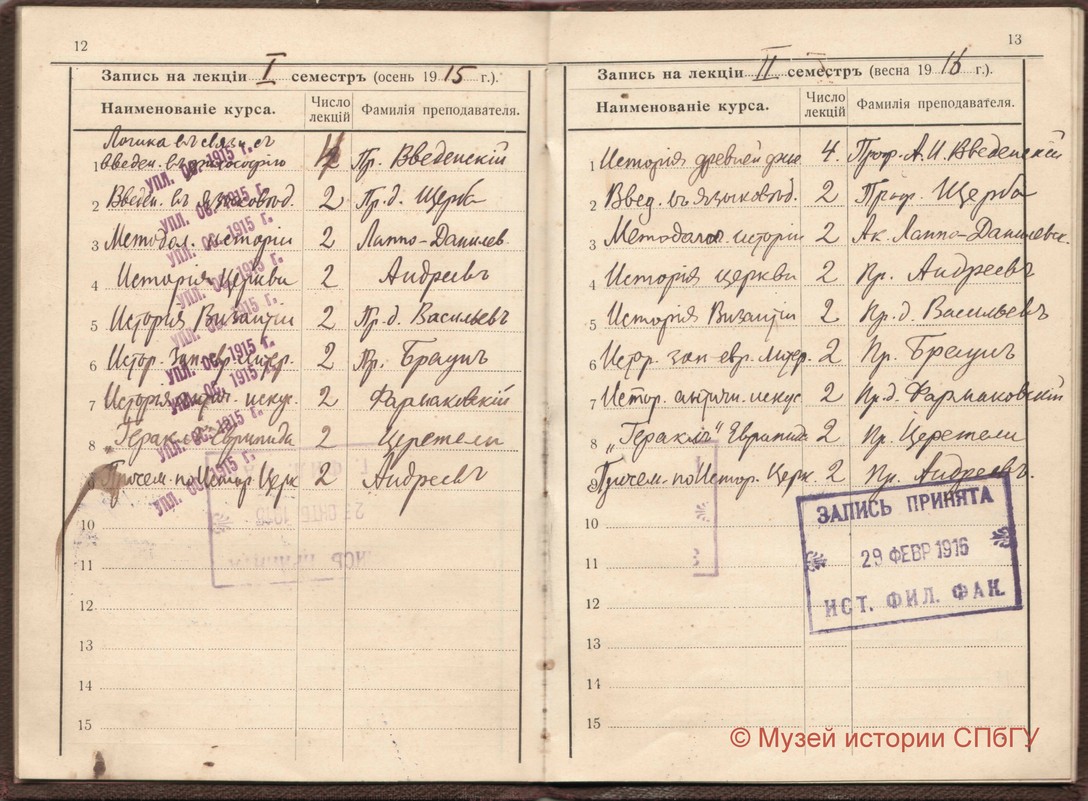 12
Запись на лекціи I семестръ (осень 1915 г.).
Наименованіе курса. Число лекцій Фамилія преподавателя.
Логика въ связи съ
1 введен. въ философію 4 Пр. Введенскій
2 Введен. въ языковѣд. 2 Пр.д. Щерба
3 Методол. исторіи 2 Лаппо-Данилев.
4 Исторія Церкви 2 Андреевъ
5 Исторія Византіи 2 Пр.д. Васильевъ
6 Истор. Зап. евр. литер. 2 Пр. Браунъ
7 Исторія антич. искус. 2 Фармаковскій
8 „Гераклъ" Еврипида 2 Церетели
9 Просем. по Истор. Церк 2 Андреевъ
10
11
12
13
14
15
УПЛ. ОС. 1915 г.
УПЛ. ОС. 1915 г.
УПЛ. ОС. 1915 г.
УПЛ. ОС. 1915 г.
УПЛ. ОС. 1915 г.
УПЛ. ОС. 1915 г.
УПЛ. ОС. 1915 г.
УПЛ. ОС. 1915 г.
УПЛ. ОС. 1915 г.
13
Запись на лекціи II семестръ (весна 1916 г.).
Наименованіе курса. Число лекцій Фамилія преподавателя.
1 Исторія древней 4. Проф. А.И. Введенскій
2 Введ. въ языковѣд. 2 Проф. Щерба
3 Методолог. исторіи 2 Ак. Лаппо-Данилевск.
4 Исторія церкви 2 Пр. Андреевъ
5 Исторія Византіи 2 Пр.д. Васильевъ
6 Истор. зап. евр. литер. 2 Пр. Браунъ
7 Истор. античн. искус 2 Пр.д. Фармаковскій
8 „Гераклъ" Еврипида 2 Пр. Церетели
9 Просем. по Истор. Церк. 2 Пр. Андреевъ.
10
11
12
13
14
15
ЗАПИСЬ ПРИНЯТА
29 ФЕВР 1916
ИСТ. ФИЛ. ФАК.
© Музей истории СПбГУ